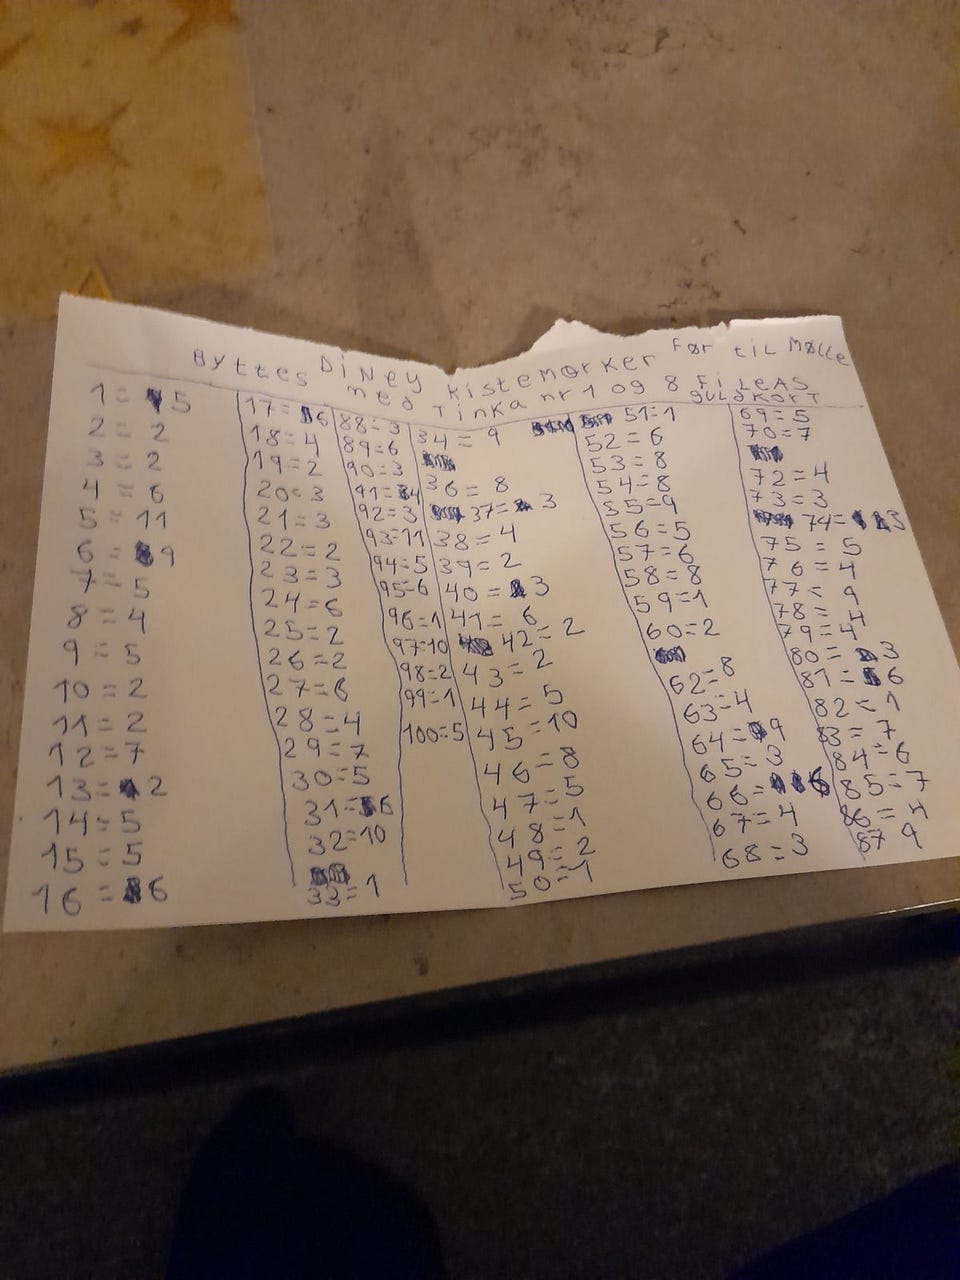 Byttes Diney Kistemorker Før til Mølle
med Tinka nr 1 og 8 Fileas
guldkort
1 = 5
2 = 2
3 = 2
4 = 6
5 = 11
6 = 9
7 = 5
8 = 4
9 = 5
10 = 2
11 = 2
12 = 7
13 = 2
14 = 5
15 = 5
16 = 6
17 = 6
18 = 4
19 = 2
20 = 3
21 = 3
22 = 2
23 = 3
24 = 6
25 = 2
26 = 2
27 = 6
28 = 4
29 = 7
30 = 5
31 = 6
32 = 10
33 = 1
88 = 3
89 = 6
90 = 3
91 = 4
92 = 3
93 = 11
94 = 5
95 = 6
96 = 1
97 = 10
98 = 2
99 = 1
100 = 5
34 = 9
36 = 8
37 = 3
38 = 4
39 = 2
40 = 3
41 = 6
42 = 2
43 = 2
44 = 5
45 = 10
46 = 8
47 = 5
48 = 1
49 = 2
50 = 1
51 = 1
52 = 6
53 = 8
54 = 8
55 = 9
56 = 5
57 = 6
58 = 8
59 = 1
60 = 2
62 = 8
63 = 4
64 = 9
65 = 3
66 = 6
67 = 4
68 = 3
69 = 5
70 = 7
72 = 4
73 = 3
74 = 3
75 = 5
76 = 4
77 = 9
78 = 4
79 = 4
80 = 3
81 = 6
82 = 1
83 = 7
84 = 6
85 = 7
86 = 4
87 9